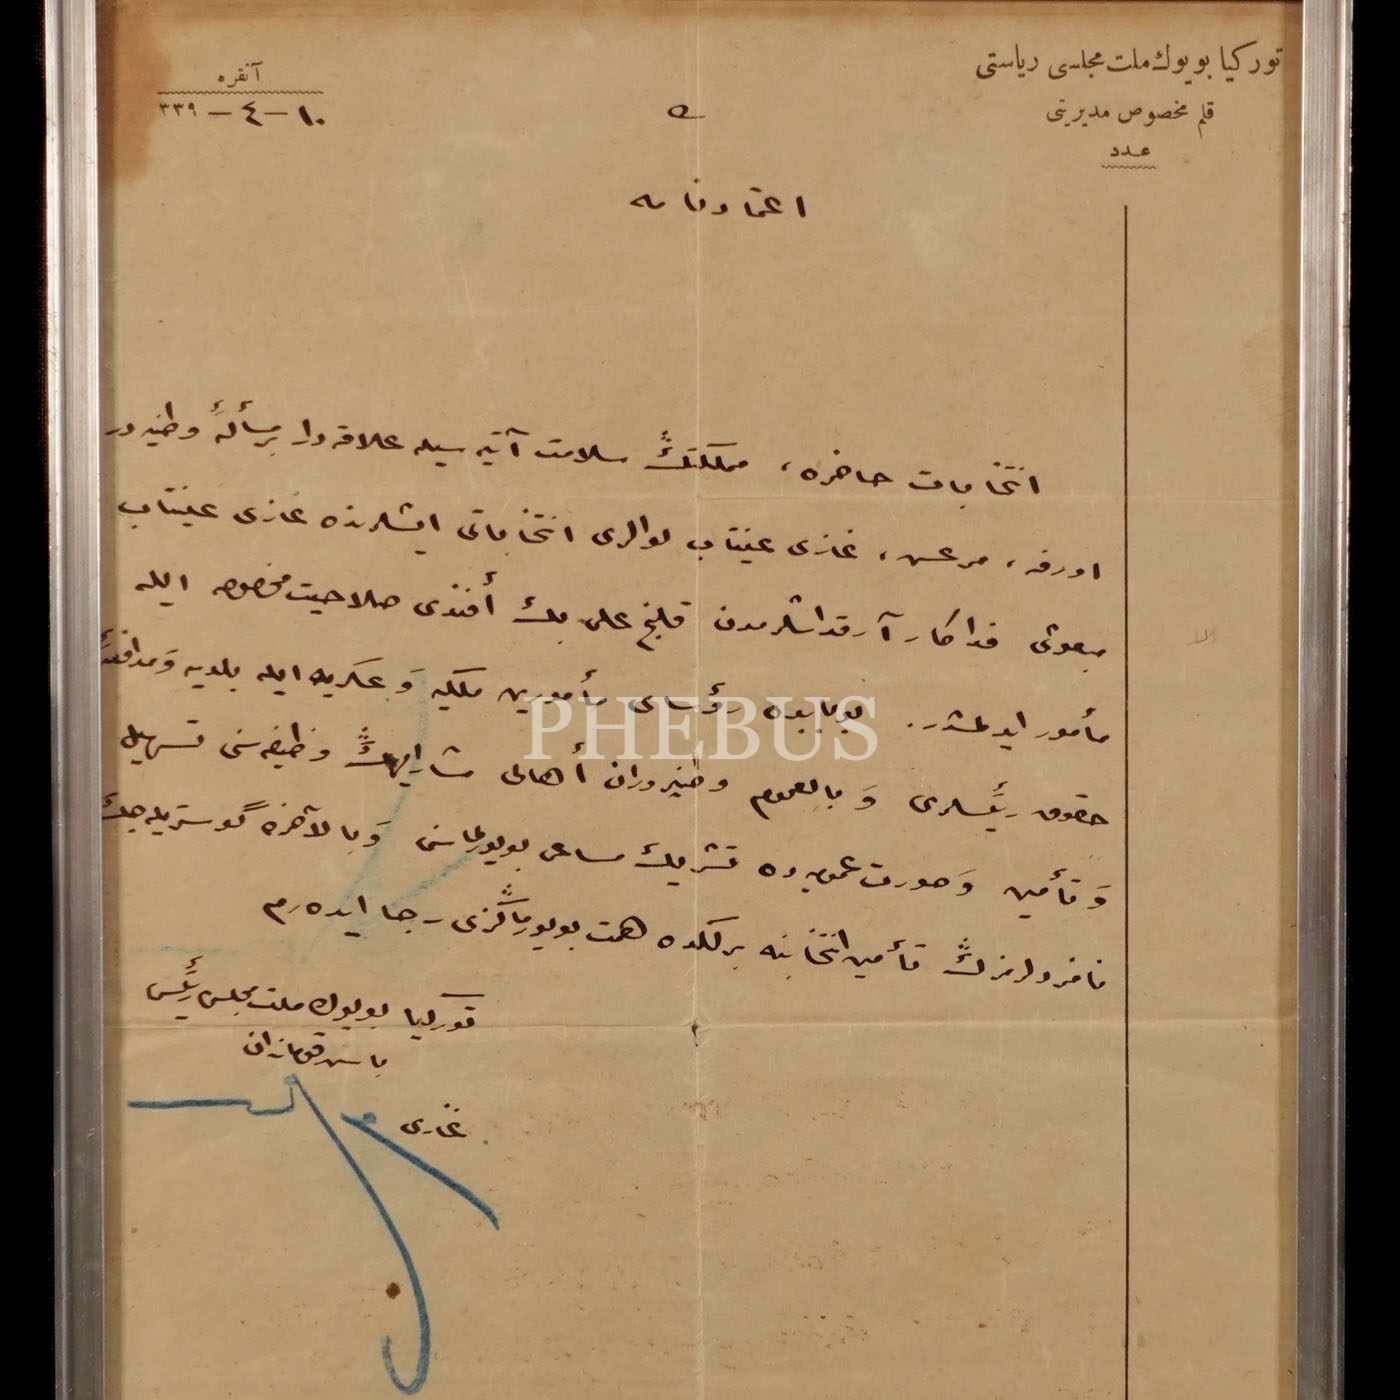 توركيا بويوك ملت مجلسى رياستى
قلم مخصوص مديريتى
عدد
آنقره
١٠ - ٤ - ٣٣٩
اعتمادنامه
انتخابات حاضره، مملكتڭ سلامت آتيه سيله علاقه دار بر مسألهٔ وطنيه در
اورفه، مرعش، غازى عينتاب لوالرى انتخاباتى ايشلرنده غازى عينتاب
مبعوثى فداكار آرقداشلرمدن قليچ على بك أفندى صلاحيت مخصوصه ايله
مأمور ايدلمشدر. بوبابده رؤساى مأمورين ملكيه وَ عسكريه ايله بلديه وَ مدافعهٔ
حقوق رئيسلرى وَ بالعموم وطنپروران أهالى مشاراليهڭ وظيفه سنى تسهيل
وَ تأمين وَ صورت عموميه ده تشريك مساعى بويورلماسنى وَ بالآخره گوستريله جك
نامزدلرمزڭ تأمين انتخابنه برلكده همت بويورماڭزى رجا ايده رم
توركيا بويوك ملت مجلسى رئيسى
باش قوماندان
غازى
PHEBUS